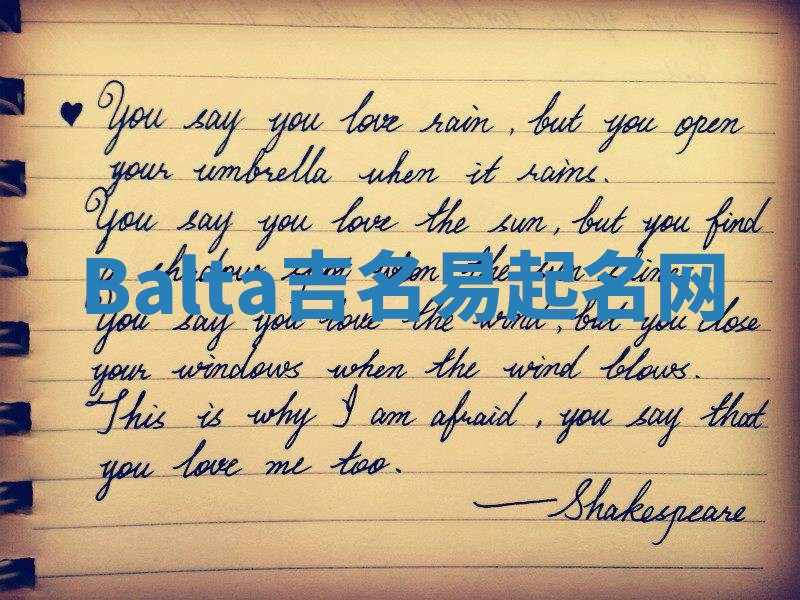 ♥ You say you love rain, but you open
your umbrella when it rains.
You say you love the sun, but you find
a shadow spot when the sun shines.
Balta吉名易起名网
You say you love the wind, but you close
your windows when the wind blows.
This is why I am afraid, you say that
you love me too.
—Shakespeare